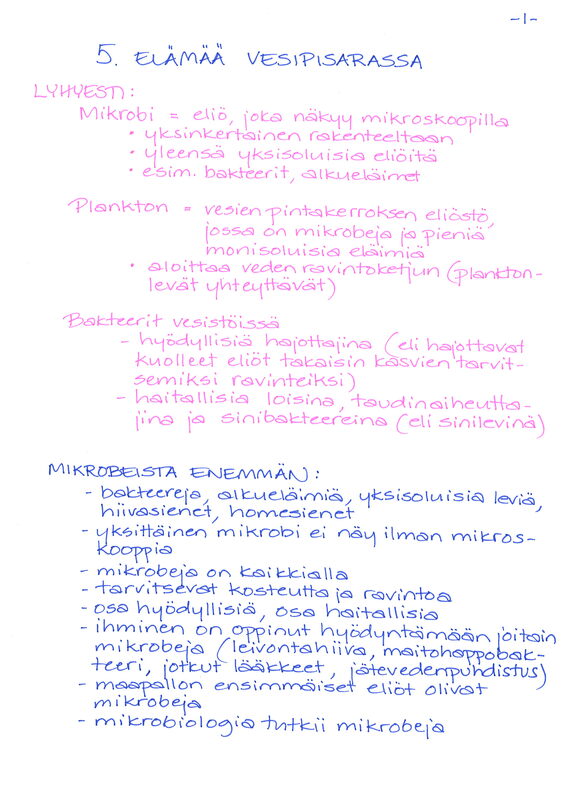 -1-
5. ELÄMÄÄ VESIPISARASSA
LYHYESTI:
Mikrobi = eliö, joka näkyy mikroskoopilla
• yksinkertainen rakenteeltaan
• yleensä yksisoluisia eliöitä
• esim. bakteerit, alkueläimet
Plankton = vesien pintakerroksen eliöstö,
jossa on mikrobeja ja pieniä
monisoluisia eläimiä
• aloittaa veden ravintoketjun (plankton-
levät yhteyttävät)
Bakteerit vesistöissä
- hyödyllisiä hajottajina (eli hajottavat
kuolleet eliöt takaisin kasvien tarvit-
semiksi ravinteiksi)
- haitallisia loisina, taudinaiheutta-
jina ja sinibakteereina (eli sinilevinä)
MIKROBEISTA ENEMMÄN:
- bakteereja, alkueläimiä, yksisoluisia leviä,
hiivasienet, homesienet
- yksittäinen mikrobi ei näy ilman mikros-
kooppia
- mikrobeja on kaikkialla
- tarvitsevat kosteutta ja ravintoa
- osa hyödyllisiä, osa haitallisia
- ihminen on oppinut hyödyntämään joitain
mikrobeja (leivontahiiva, maitohappobak-
teeri, jotkut lääkkeet, jätevedenpuhdistus)
- maapallon ensimmäiset eliöt olivat
mikrobeja
- mikrobiologia tutkii mikrobeja